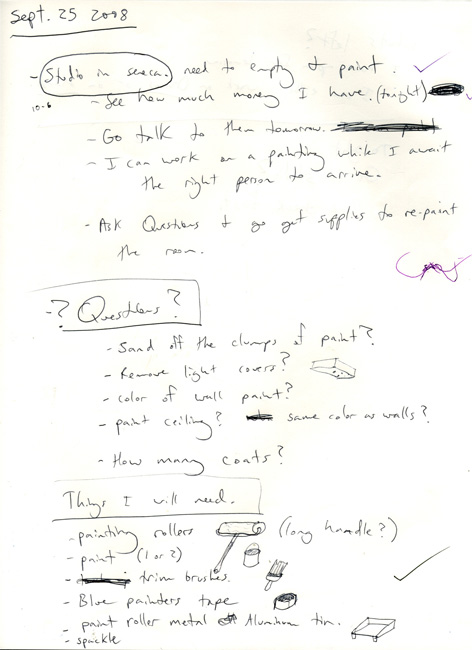 Sept. 25 2008
- Studio in seneca. need to empty & paint.
10-6 - See how much money I have. (tonight)
- Go talk to them tomorrow.
- I can work on a painting while I await
the right person to arrive.
- Ask Questions & go get supplies to re-paint
the room.
-? Questions?
- Sand off the clumps of paint?
- Remove light covers?
- color of wall paint?
- paint ceiling? same color as walls?
- How many coats?
Things I will need.
- painting rollers (long handle?)
- paint (1 or 2)
- trim brushes.
- Blue painters tape
- paint roller metal Aluminum tin.
- spackle